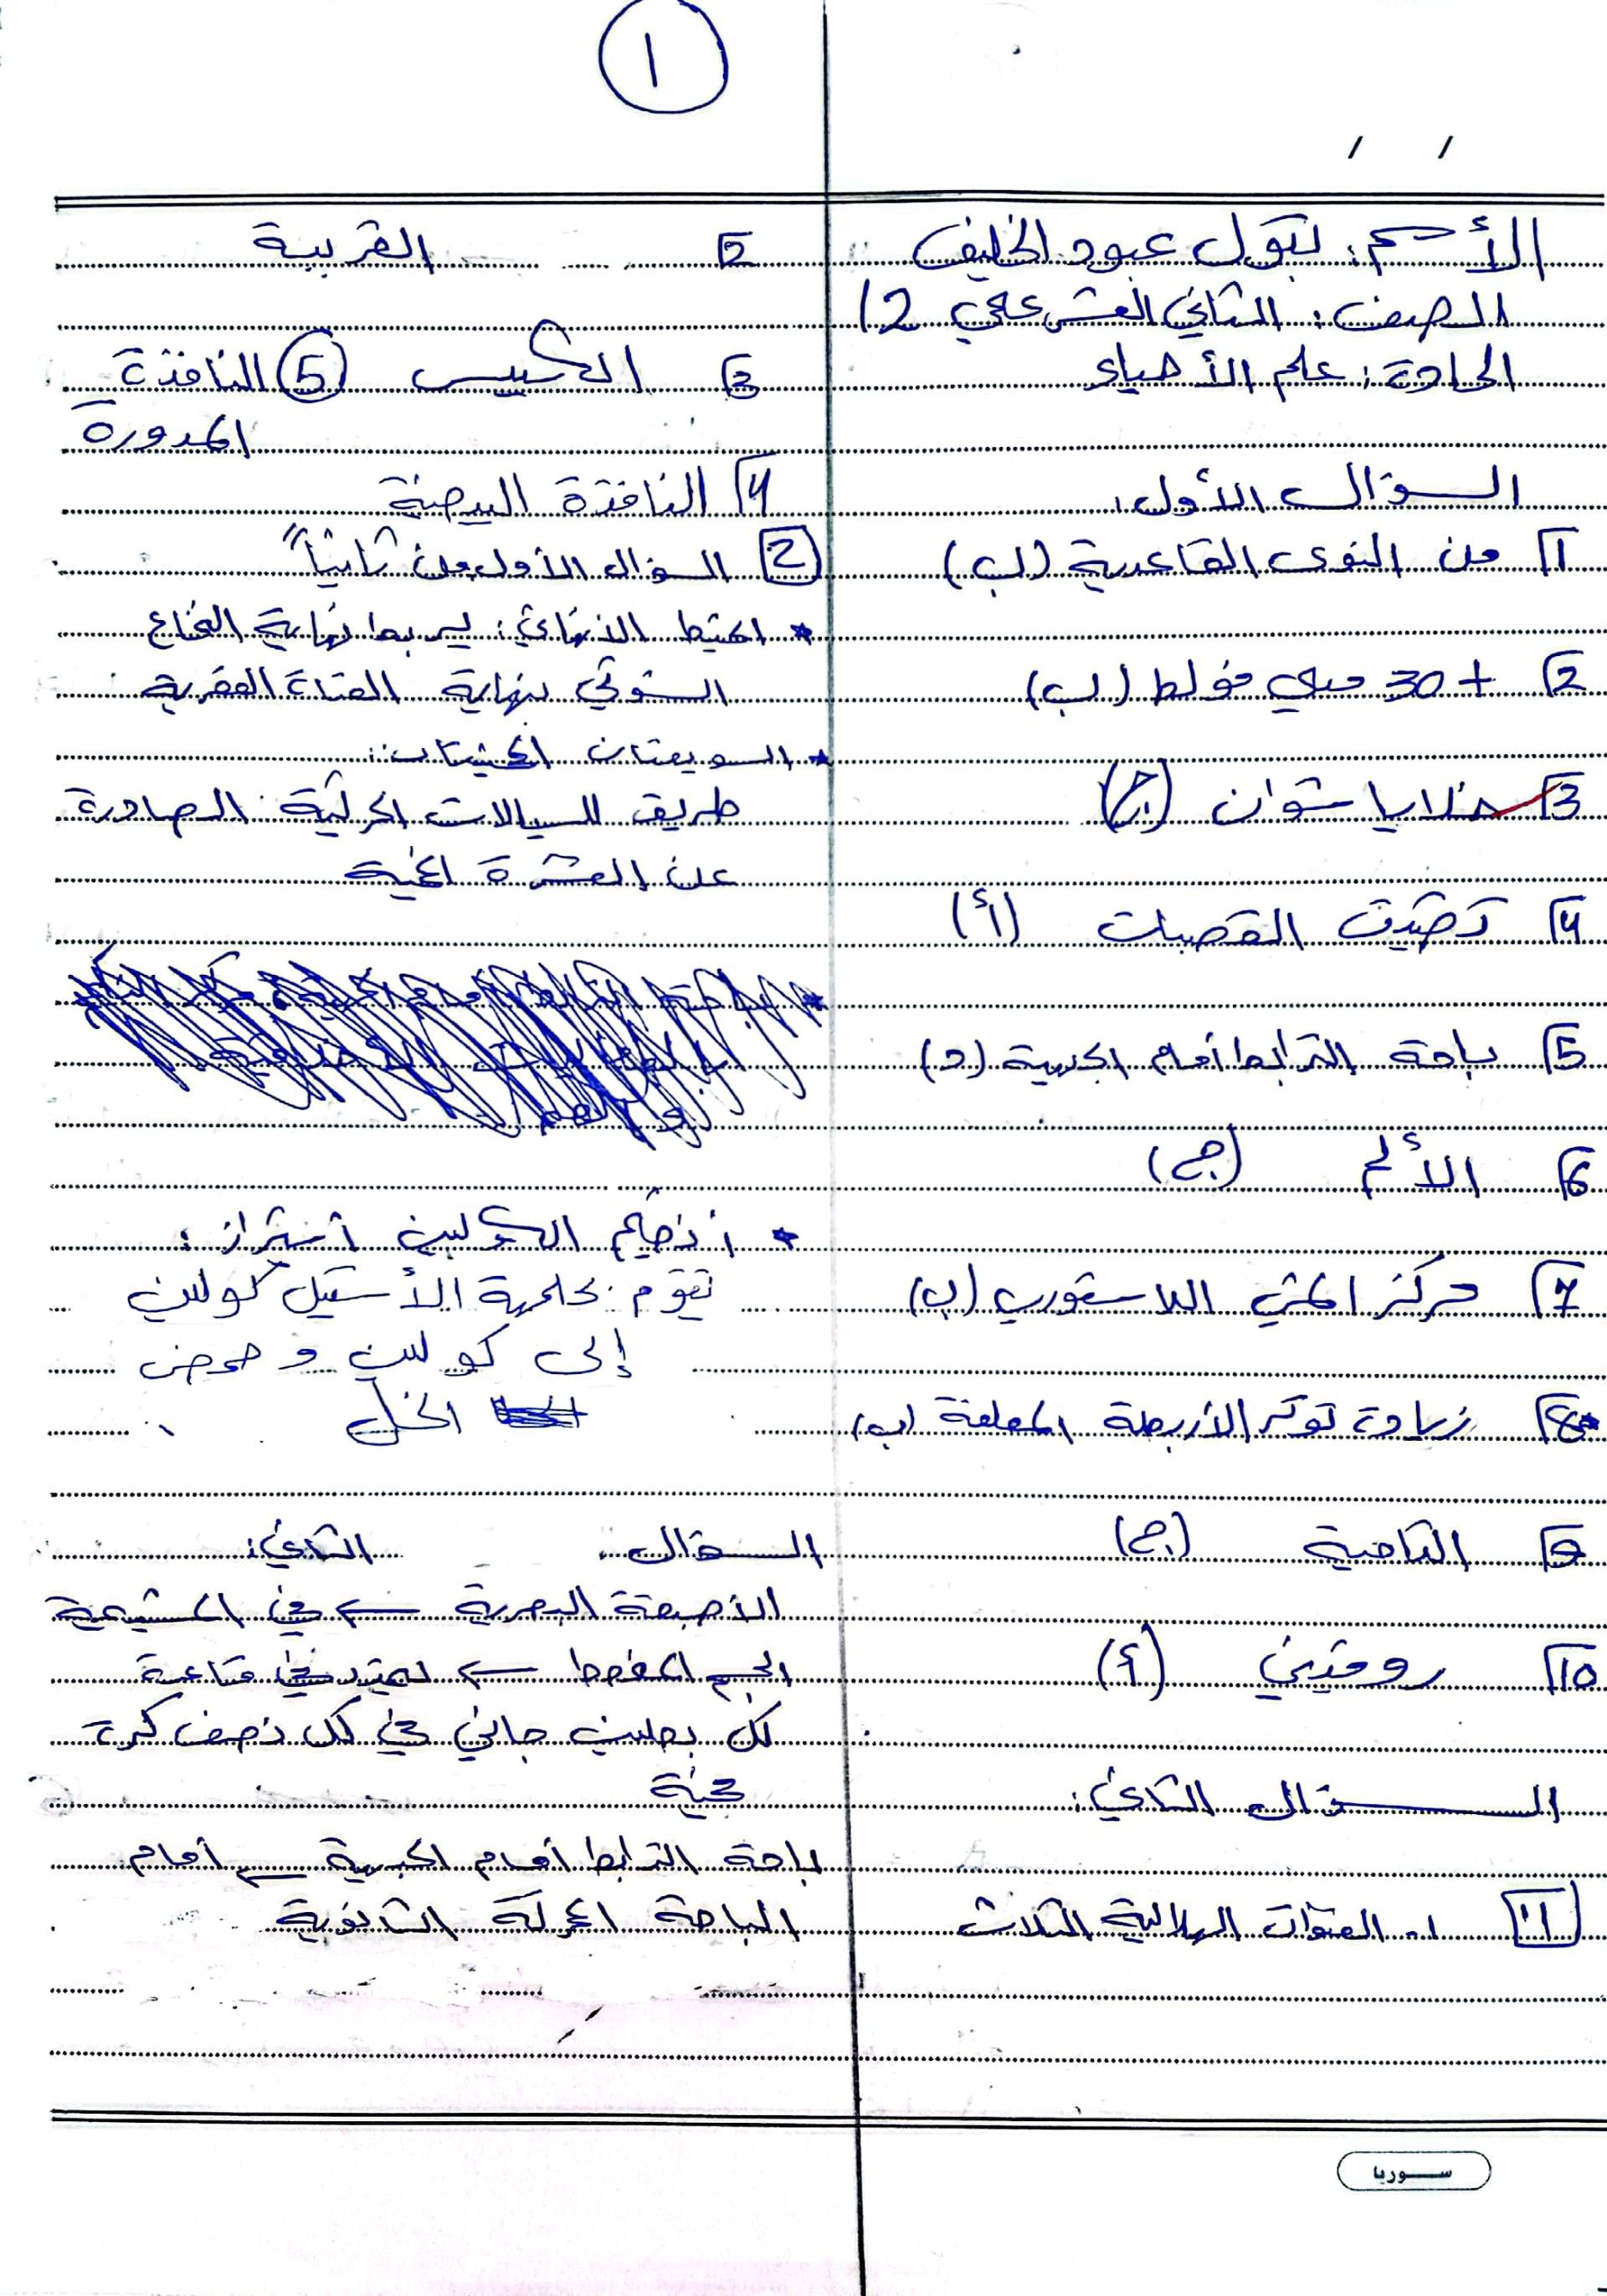 ١
/ /
الأسم: بتول عبود الخليف
الصف: الثاني العشر علمي 2/
المادة: علم الأحياء
السؤال الأول:
1 من النوى القاعدية (ب)
2 +30 ميلي فولط (ب)
3 خلايا شوان (ج)
4 تضيق القصبات (أ)
5 باحة الترابط أمام الجبهية (د)
6 الألم (ج)
7 مركز المشي اللاشعوري (ب)
8 زيادة توتر الأربطة المعلقة (ب)
9 النامية (ج)
10 روفيني (أ)
السؤال الثاني:
1 1. القنوات الهلالية الثلاث
2 القريبة
3 الكييس 5 النافذة
المدورة
4 النافذة البيضية
2 السؤال الأول من ثانياً
* الخيط الانتهائي: يربط نهاية النخاع
الشوكي بنهاية القناة الفقرية
* السويقتان المخيتان:
طريق للسيالات المحركة الصادرة
عن القشرة المخية
* أنظيم الكولين أستيراز:
تقوم بحلمهة الأستيل كولين
إلى كولين و حمض
الخل
السؤال الثاني:
الأصبغة البصرية ← في المشيمية
الجسم المخطط ← يمتد في قاعدة
كل بطين جانبي في كل نصف كرة
مخية
باحة الترابط أمام الجبهية ← أمام
الباحة المحركة الثانوية
سوريا